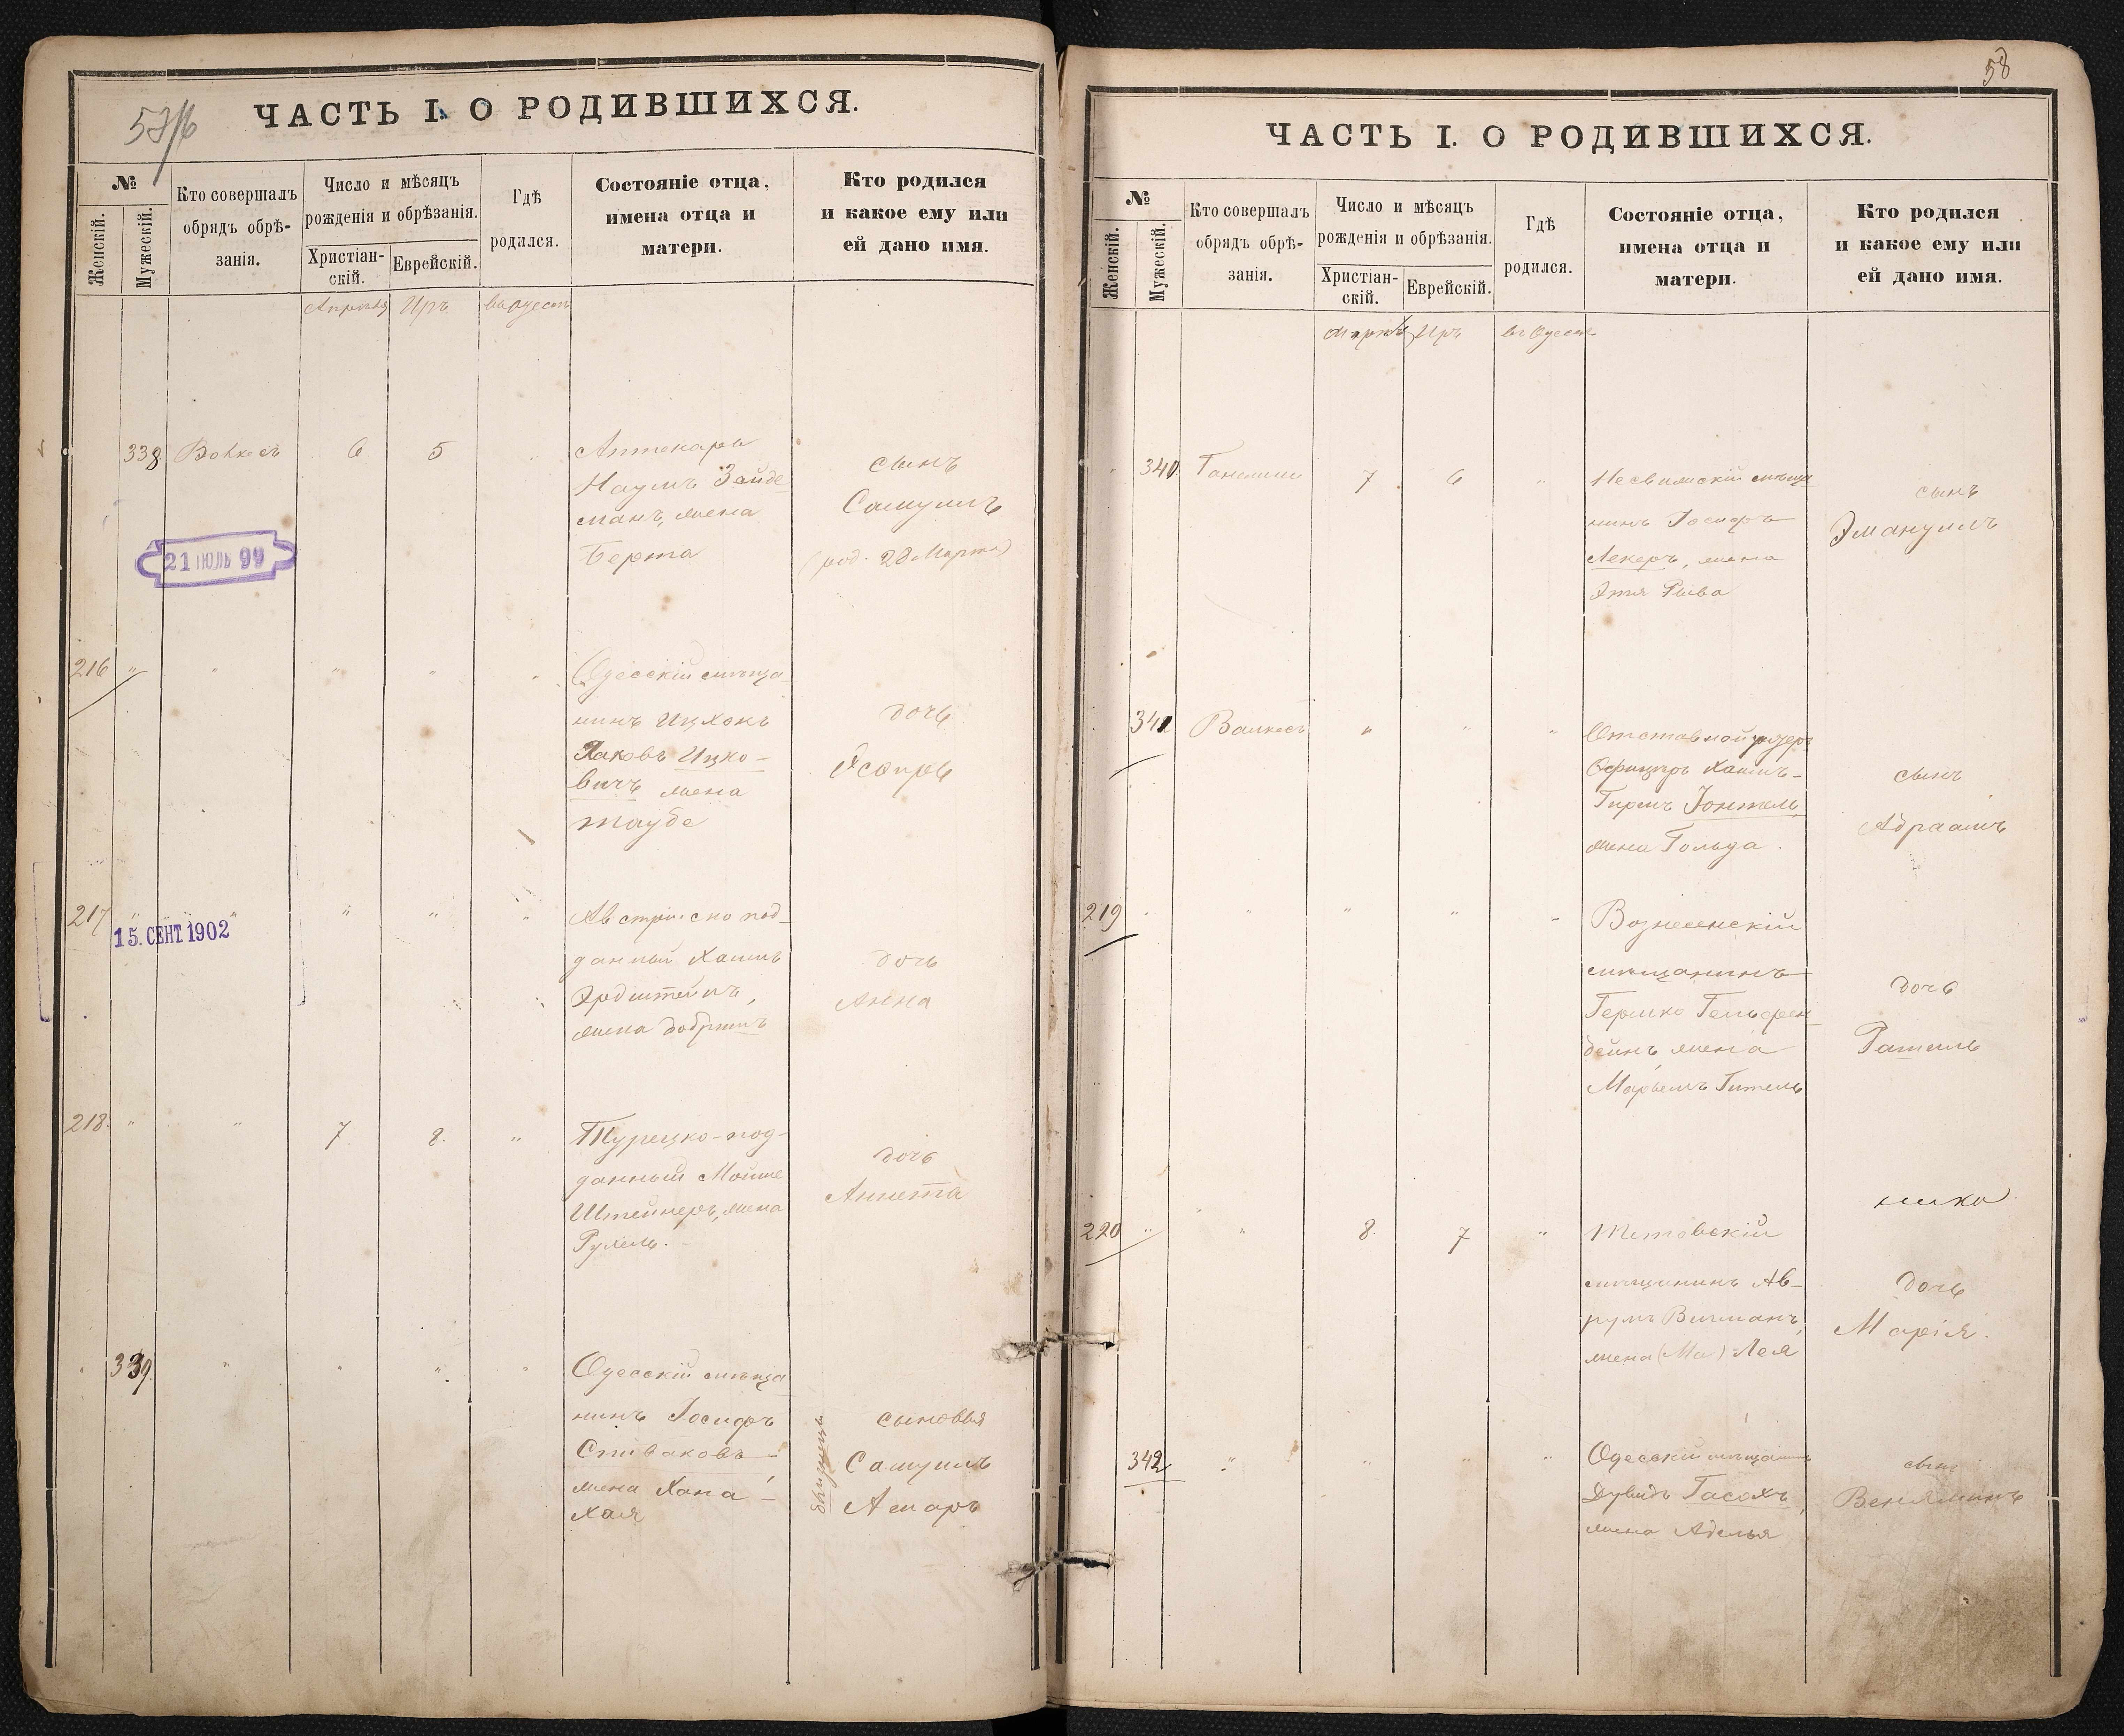 ЧАСТЬ I. О РОДИВШИХСЯ.
№
Женскій.
Мужескій.
Кто совершалъ
обрядъ обрѣ-
занія.
Число и мѣсяцъ
рожденія и обрѣзанія.
Христіан-
скій.
Еврейскій.
Гдѣ
родился.
Состояніе отца,
имена отца и
матери.
Кто родился
и какое ему или
ей дано имя.
Апрѣля Иръ въ Одессѣ
338
6 5
Аптекарь
Наумъ Зейде-
манъ, жена
Берта
сынъ
Самуилъ
(род. 28 Марта)
21 ІЮЛЬ 99
216 " " " " "
Одесскій мѣща-
нинъ Ицхокъ
Яаковъ Ицко-
вичъ жена
Таубе
дочь
Эсѳирь
217 " " " " "
15. СЕНТ. 1902
Австрійско под-
данный Хаимъ
жена
дочь
Анна
218 " " 7 8. "
Турецко-под-
данный Мойше
Штейнеръ, жена
Рухель.
дочь
Аннета
339 " " " "
Одесскій мѣща-
нинъ Іосифъ
Спиваковъ-
жена Хана-
Хая
близнецы
сыновья
Самуилъ
58
ЧАСТЬ I. О РОДИВШИХСЯ.
№
Женскій.
Мужескій.
Кто совершалъ
обрядъ обрѣ-
занія.
Число и мѣсяцъ
рожденія и обрѣзанія.
Христіан-
скій.
Еврейскій.
Гдѣ
родился.
Состояніе отца,
имена отца и
матери.
Кто родился
и какое ему или
ей дано имя.
Апрѣля Иръ въ Одессѣ
340
7 6 "
Несвижскій мѣща-
нинъ Іосифъ
Лекеръ, жена
Этя Рыва
сынъ
Эмануилъ
341 " " "
Отставной унтеръ
Офицеръ Хаимъ-
жена Гольда.
сынъ
Абраамъ
219 " " " " "
Вознесенскій
мѣщанинъ
Гершко
жена
Марьемъ Гитель
дочь
220 " " 8. 7 "
мѣщанинъ Ав-
румъ
жена (Ма) Лея
дочь
Марія.
342 " " " "
Одесскій мѣщанинъ
Дувидъ Гасохъ,
жена Аделья
сынъ
Веніаминъ